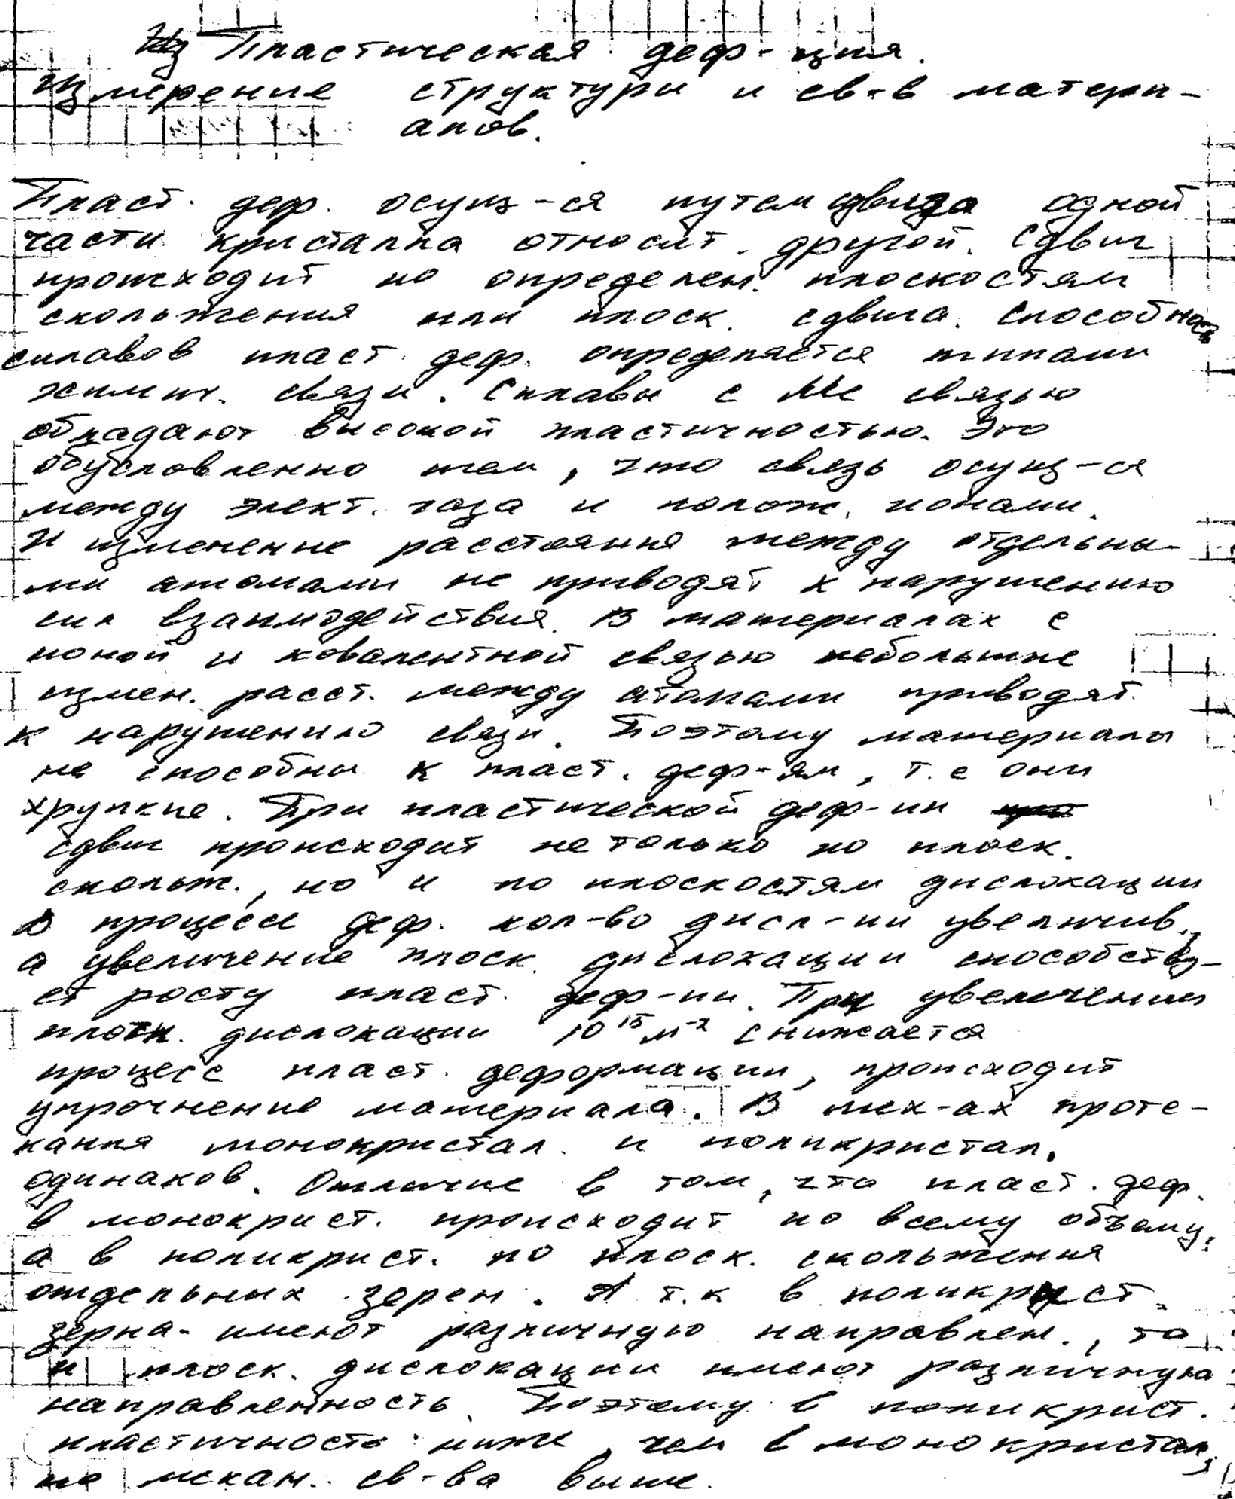 Пластическая деф-ция.
Измерение структуры и св-в матери-
алов.
Пласт. деф. осущ-ся путем сдвига одной
части кристалла относит. другой. Сдвиг
происходит по определен. плоскостям
скольжения или плоск. сдвига. Способность
сплавов пласт. деф. определяется типами
химич. связи. Сплавы с Ме связью
обладают высокой пластичностью. Это
обусловленно тем, что связь осущ-ся
между элект. газа и полож. ионами.
И изменение расстояния между отдельны-
ми атомами не приводят к нарушению
сил взаимодействия. В материалах с
ионой и ковалентной связью небольшие
измен. расст. между атомами приводят
к нарушению связи. Поэтому материалы
не способны к пласт. деф-ям, т.е они
хрупкие. При пластической деф-ии
сдвиг происходит не только по плоск.
скольж., но и по плоскостям дислокации
В процессе деф. кол-во дисл-ии увеличив.,
а увеличение плоск. дислокации способству-
ет росту пласт. деф-ии. При увеличении
плотн. дислокации 10¹⁵ м⁻² снижается
процесс пласт. деформации, происходит
упрочнение материала. В мех-ах проте-
кания монокристал. и поликристал.
одинаков. Отличие в том, что пласт. деф.
в монокрист. происходит по всему объему,
а в поликрист. по плоск. скольжения
отдельных зерен. А т.к в поликрист.
зерна имеют различную направлен., то
и плоск. дислокации имеют различную
направленность. Поэтому в поликрист.
пластичность ниже, чем в монокристал,
но механ. св-ва выше.